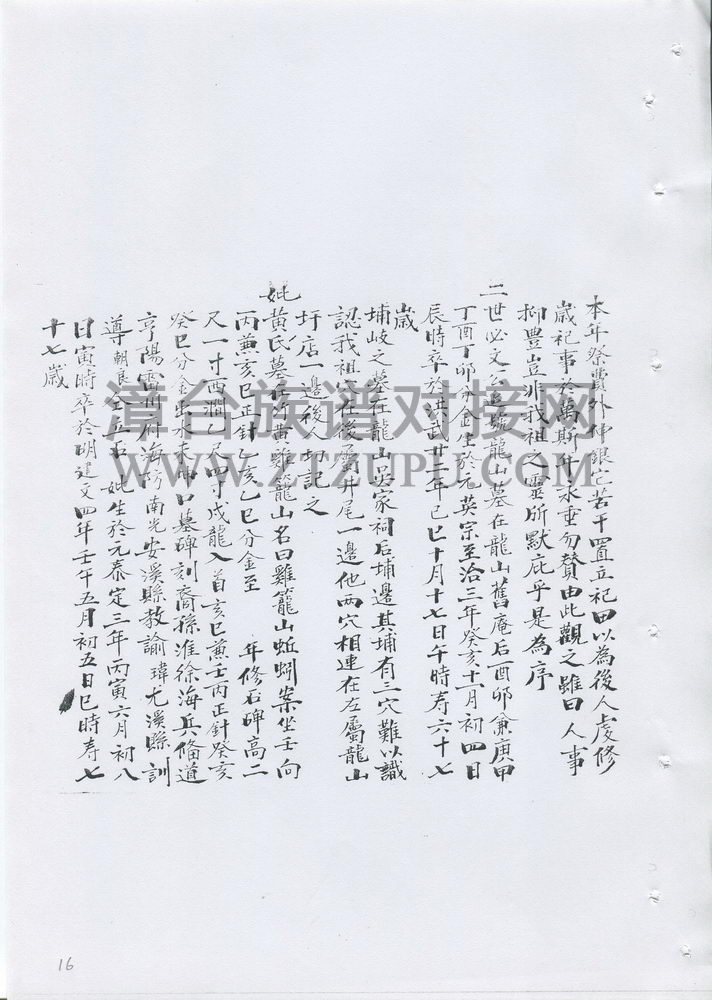 本年祭費外伸銀七若干置立祀田以為後人虔修
歲祀事於萬斯年永垂勿贊由此觀之雖曰人事
抑豊豈非我祖之靈所默庇乎是為序
二世必文公墓號龍山墓在龍山舊庵后酉卯兼庚甲
丁酉丁卯分金生於元英宗至治三年癸亥十一月初四日
辰時卒於洪武廿二年己巳十月十七日午時寿六十七
歲
埔岐之墓在龍山吳家祠后埔邊其埔有三穴難以識
認我祖穴在後 井尾一邊他两穴相連在左屬龍山
圩店一邊後人切記之
妣黃氏墓在 黄雞籠山名曰雞籠山蚯蚓案坐壬向
丙兼亥巳正針乙亥乙巳分金至 年修石碑高二
尺一寸西濶一尺四寸戌龍入首亥巳兼壬丙正針癸亥
癸巳分金 水未 口墓碑刻裔孫淮徐海兵備道
亨陽雷 州海防南光安溪縣教諭瑋尤溪縣訓
導朝良仝立石 妣生於元泰定三年丙寅六月初八
日寅時卒於明建文四年壬午五月初五日巳時寿七
十七歲
漳台族谱对接网
WWW.ZTZUPU.COM
16